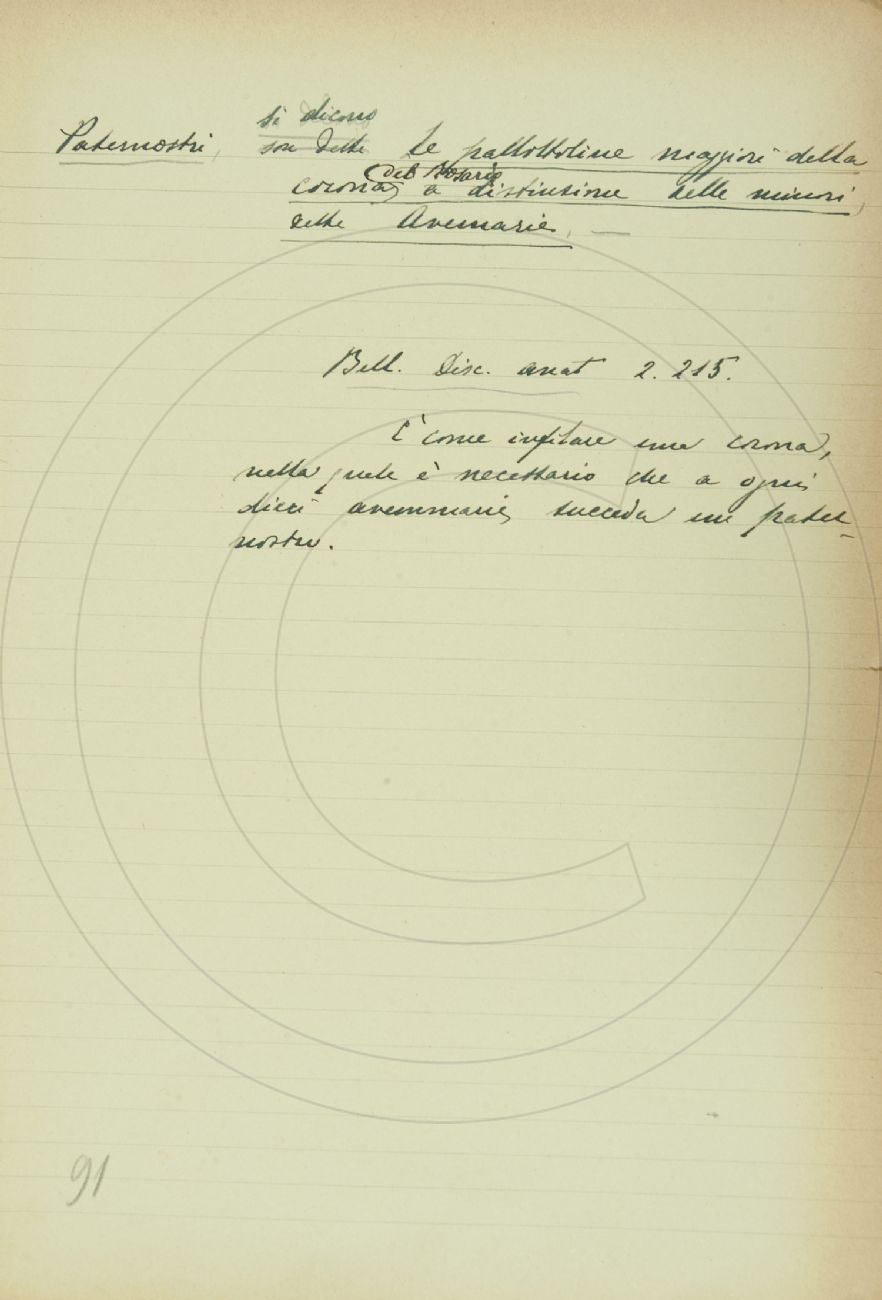 si dicono
Paternostri, son dette le pallottoline maggiori della
del Rosario
corona, a distinzione delle minori,
dette Avemarie. —
Bell. Disc. anat 2. 215.
È come infilare una corona,
nella quale è necessario che a ogni
dieci avemmarie succeda un pater-
nostro.
91